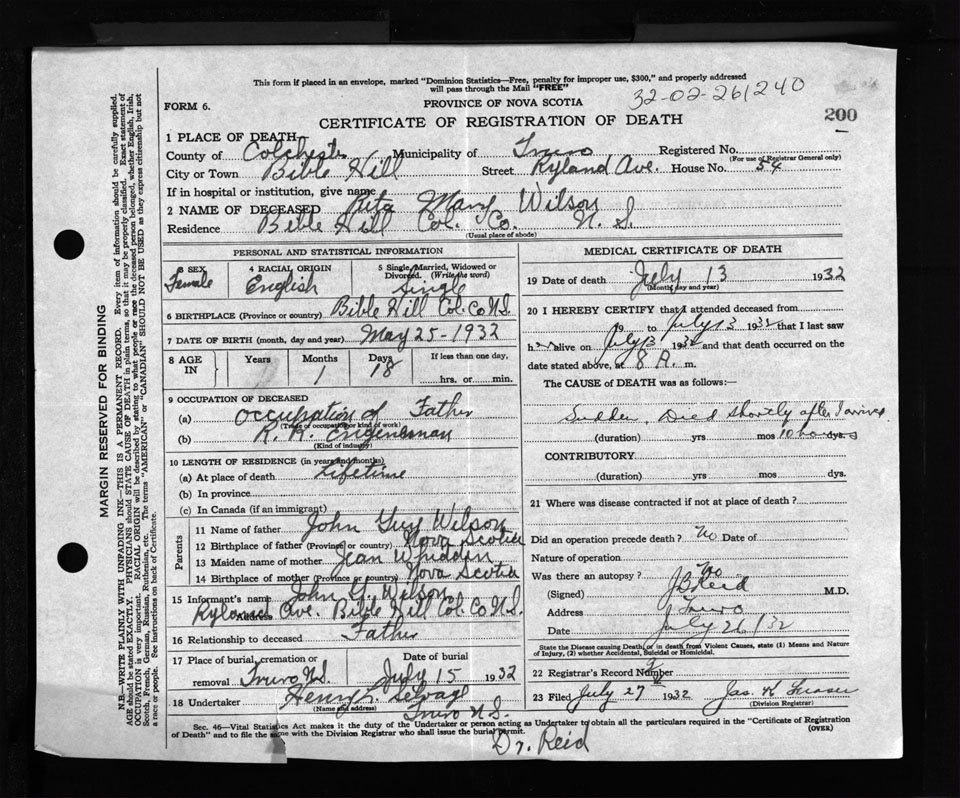 This form if placed in an envelope, marked "Dominion Statistics—Free, penalty for improper use, $300," and properly addressed
will pass through the Mail "FREE"
32-02-261240
FORM 6.
PROVINCE OF NOVA SCOTIA
200
CERTIFICATE OF REGISTRATION OF DEATH
MARGIN RESERVED FOR BINDING
N.B.—WRITE PLAINLY WITH UNFADING INK—THIS IS A PERMANENT RECORD. Every item of information should be carefully supplied.
AGE should be stated EXACTLY. PHYSICIANS should STATE CAUSE OF DEATH in plain terms, so that it may be properly classified. Exact statement of
OCCUPATION is very important. RACIAL ORIGIN will be described by stating to what people or race the deceased person belonged, whether English, Irish,
Scotch, French, German, Russian, Ruthenian, etc. The terms "AMERICAN" or "CANADIAN" SHOULD NOT BE USED as they express citizenship but not
a race or people. See instructions on back of Certificate.
1 PLACE OF DEATH—
County of Colchester Municipality of Truro Registered No.
(For use of Registrar General only)
City or Town Bible Hill Street Ryland Ave. House No. 54
If in hospital or institution, give name
2 NAME OF DECEASED Rita Mary Wilson
Residence Bible Hill Col. Co. N. S.
(Usual place of abode)
PERSONAL AND STATISTICAL INFORMATION
3 SEX 4 RACIAL ORIGIN 5 Single, Married, Widowed or Divorced. (Write the word)
Female English Single
6 BIRTHPLACE (Province or country) Bible Hill Col. Co N.S.
7 DATE OF BIRTH (month, day and year) May 25-1932
8 AGE IN Years Months Days If less than one day,
1 18 hrs. or min.
9 OCCUPATION OF DECEASED
(a) Occupation of Father
(Trade or occupation or kind of work)
(b) R. R. Engineman
(Kind of industry)
10 LENGTH OF RESIDENCE (in years and months)
(a) At place of death Lifetime
(b) In province
(c) In Canada (if an immigrant)
Parents
11 Name of father John Guy Wilson
12 Birthplace of father (Province or country) Nova Scotia
13 Maiden name of mother Jean Whidden
14 Birthplace of mother (Province or country) Nova Scotia
15 Informant's name John G. Wilson
Address Ryland Ave. Bible Hill Col. Co N.S.
16 Relationship to deceased Father
17 Place of burial, cremation or Date of burial
removal Truro N.S. July 15 1932
18 Undertaker Henry Selvage
(Name and address) Truro N.S.
MEDICAL CERTIFICATE OF DEATH
19 Date of death July 13 1932
(Month, day and year)
20 I HEREBY CERTIFY that I attended deceased from
19 to July 13 1932 that I last saw
h alive on July 13 1932 and that death occurred on the date
stated above, at 8 A. m.
The CAUSE of DEATH was as follows:
Sudden, Died shortly after I arrived
(duration) yrs mos 10 dys
CONTRIBUTORY
(duration) yrs mos dys.
21 Where was disease contracted if not at place of death?
Did an operation precede death? No Date of
Nature of operation
Was there an autopsy? No
(Signed) J B Reid M.D.
Address Truro
Date July 26/32
State the Disease causing Death, or in death from Violent Causes, state (1) Means and Nature
of Injury, (2) whether Accidental, Suicidal or Homicidal.
22 Registrar's Record Number
23 Filed July 27 1932 Jas. K Fraser
(Division Registrar)
Sec. 46—Vital Statistics Act makes it the duty of the Undertaker or person acting as Undertaker to obtain all the particulars required in the "Certificate of Registration
of Death" and to file the same with the Division Registrar who shall issue the burial permit. (OVER)
Dr. Reid